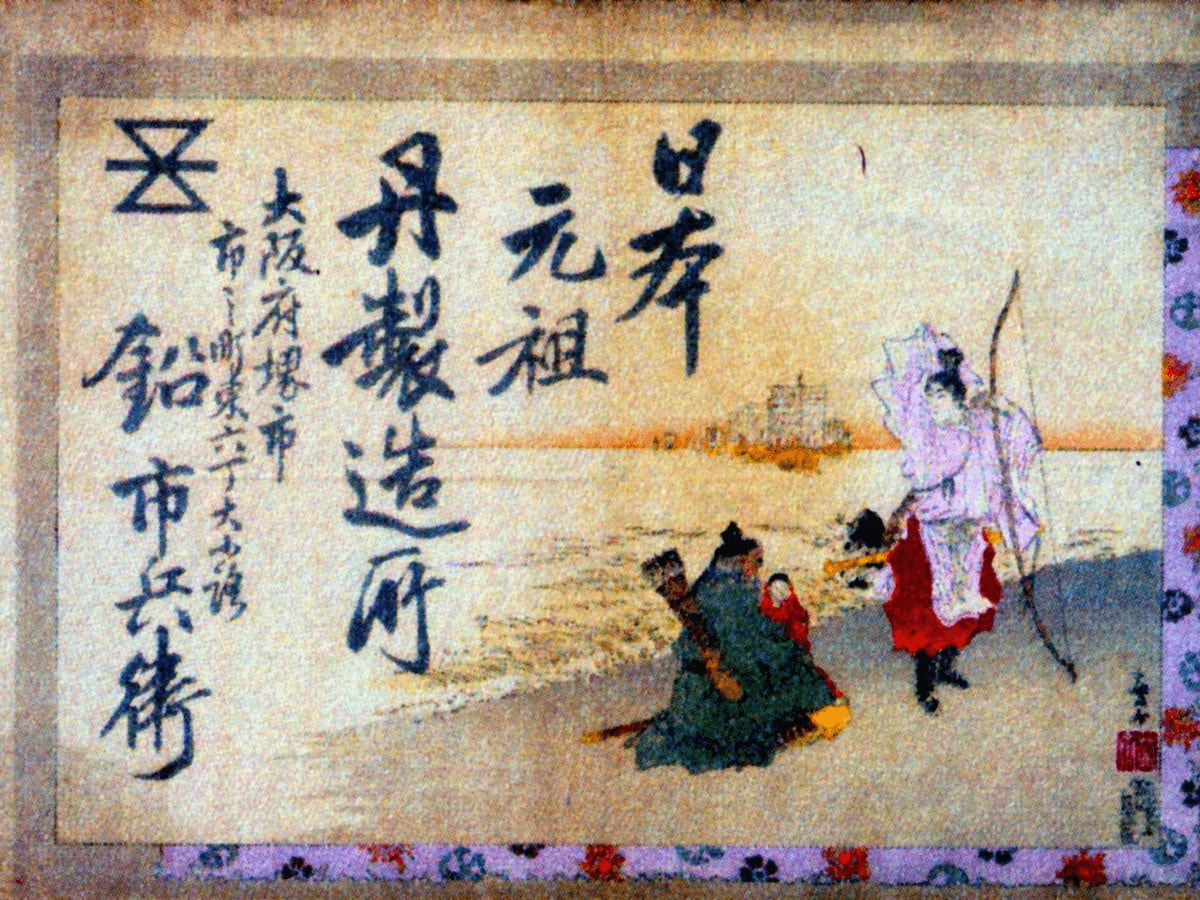 日本
元祖
丹製造所
大阪府堺市
市之町東六丁大小路
鉛市兵衛